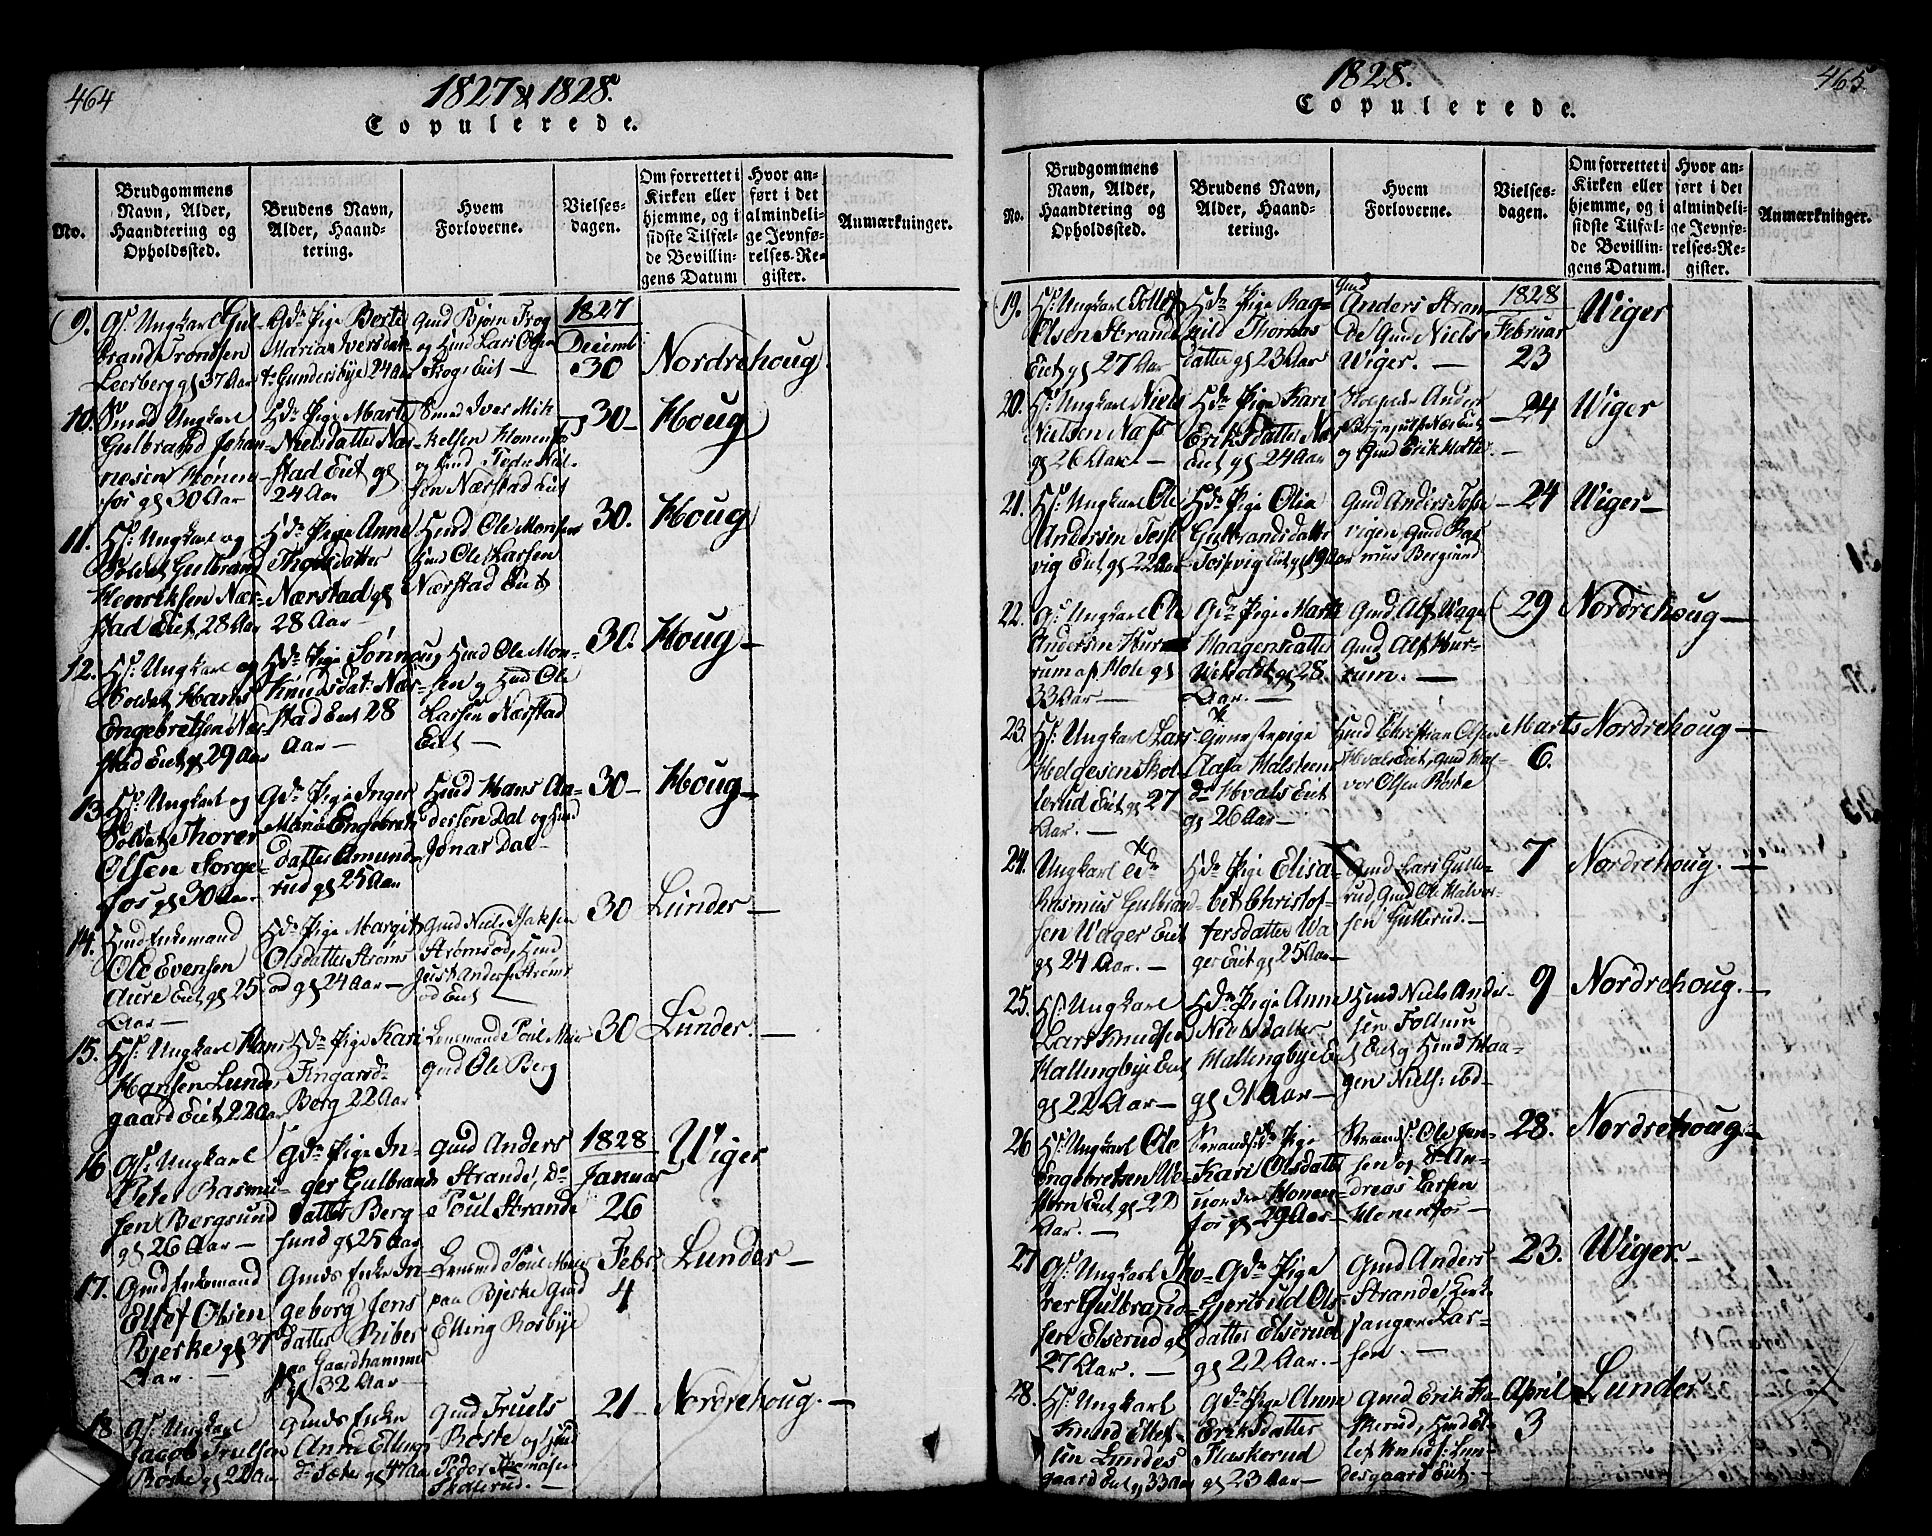 464
1827 & 1828.
Copulerede.
No.
Brudgommens
Navn, Alder,
Haandtering og
Opholdssted.
Brudens Navn,
Alder, Haand-
tering.
Hvem
Forloverne.
Vielses-
dagen.
Om forrettet i
Kirken eller
hjemme, og i
sidste Tilfæl-
de Bevillin-
gens Datum
Hvor an-
ført i det
almindeli-
ge Jevnfø-
relses-Re-
gister.
Anmærkninger.
9.
Gs: Ungkarl Gul-
brand Tronsen
Leerberg gl 37 Aar
Gdr Pige Berte
Maria Iversdat-
tr Gundersbye 24 Aar
Gmd Bjørn Frog
og Hmd Lars Olsen
Frogs Eiet
1827
Decemb
30
Nordrehoug
10.
Smed Ungkarl
Gulbrand Johan-
nesen Hønen-
fos gl 30 Aar
Hdr Pige Marte
Nielsdatter Nær-
stad Eiet gl
24 Aar
Smed Iver Mik-
kelsen Honenfos
og Hmd Peder Niel-
sen Nærstad Eiet
30
Houg
11.
Hs: Ungkarl og
Soldat Gulbrand
Henriksen Nær-
stad Eiet, 28 Aar
Hdr Pige Anne
Thorsdatter
Nærstad gl
28 Aar
Hmd Ole Monsen
Hmd Ole Larsen
Nærstad Eiet
30.
Houg
12.
Hs: Ungkarl og
Soldat Hans
Engebretsen Nær-
stad Eiet gl 29 Aar
Hdr Pige Sønnoug
Knudsdat: Nær-
stad Eiet 28
Aar
Hmd Ole Mon-
sen og Hmd Ole
Larsen Nærstad
Eiet
30.
Houg
13.
Hs: Ungkarl og
Soldat Thorer
Olsen Sorge-
fos gl 30 Aar
Gdr Pige Inger
Maria Engebrets
datter Amund-
rud gl 25 Aar
Hmd Hans An-
dersen Dal og Hmd
Jonas Dal
30
Houg
14.
Hmd Enkemand
Ole Evensen
Aure Eiet gl 25
Aar
Hdr Pige Margit
Olsdatter Strøms
od gl 24 Aar
Gmd Niels Isaksen
Strømsod, Hmd
Just Anders: Strøms
od Eiet
30
Lunder
15.
Hs: Ungkarl Hans
Hansen Lunder
gaard Eiet 22 Aar
Hdr Pige Kari
Fingarsdr
Berg 22 Aar
Lensmand Poul Meier
Gmd Ole Berg
30
Lunder.
16
Gs: Ungkarl
Peter Rasmu-
sen Bergsund
gl 26 Aar
Gdr Pige In-
ger Gulbrands
datter Berg-
sund gl 25 Aar
Gmd Anders
Strande, Do
Poul Strande
1828
Januar
26
Wiger
17.
Gmd Enkemand
Ellef Olsen
Bjerke gl 37
Aar.
Gmds Enke In-
geborg Jens
datter Riber
paa Gaardhammer
gl 32 Aar
Lensmd Poul Meier
paa Bjerke Gmd
Elling Rosbye
Febr
4
Lunder
18
Gs: Ungkarl
Jacob Trulsen
Røske gl 22 Aar
Gmds Enke
Anne Ellings
dr Sætr gl 47 Aar
Gmd Truels
Røske og Hmd
Peder Thomasen
Skollerud.
21
Nordrehoug.
465
1828.
Copulerede.
No.
Brudgommens
Navn, Alder,
Haandtering og
Opholdssted.
Brudens Navn,
Alder, Haand-
tering.
Hvem
Forloverne.
Vielses-
dagen.
Om forrettet i
Kirken eller
hjemme, og i
sidste Tilfæl-
de Bevillin-
gens Datum.
Hvor an-
ført i det
almindeli-
ge Jevnfø-
relses-Re-
gister.
Anmærkninger.
19.
Hs: Ungkarl Tollef
Olsen Strande
Eiet gl 27 Aar
Hdr Pige Rag-
hild Thomas
datter gl 23 Aar
Gmd
Anders Stran
de Gmd Niels
Wiger.
1828
Februar
23
Wiger
20.
Hs: Ungkarl Niels
Nielsen Næss
gl 26 Aar.
Hdr Pige Kari
Eriksdatter Næs
Eiet gl 24 Aar
og Gmd Erik Holte.
24
Wiger
21.
Hs: Ungkarl Ole
Andersen Tosse
vig Eiet gl 22 Aar
Hdr Pige Olia
Gulbrandsdatter
Tossevig Eiet gl 19 Aar
Gmd Anders Tosse
vigen Gmd Ras
mus Bergsund
24
Wiger
22.
Gs: Ungkarl Ole
Andersen Hur-
rum af Hole gl
33 Aar
Gdr Pige Marte
Haagensdatter
Veholdt gl 28
Aar.
Gmd Alf Wager
Gmd Alf Hur-
rum.
29
Nordrehoug
23.
Hs: Ungkarl Lars
Helgesen Skol
lerud Eiet gl 27
Aar.
Tjenestepige
Aasa Halsteens
dr Hvals Eiet
gl 26 Aar
Hmd Christian Olsen
Hvals Eiet, Gmd Hal-
vor Olsen Røske
Marts
6.
Nordrehoug
24.
Ungkarl
Rasmus Gulbrand
sen Wager Eiet
gl 24 Aar.
Hdr Pige Elisa-
bet Christof-
fersdatter Wa
ger Eiet gl 25 Aar
Gmd Lars Gulle-
rud, Gmd Ole Halvor-
sen Gullerud.
7
Nordrehoug.
25.
Hs: Ungkarl
Lars Knudsen
Hallingbye Eiet
gl 22 Aar
Hdr Pige Anne
Nielsdatter
Hallingbye Eiet
gl 31 Aar
Hmd Niels Ander-
sen Follum
Eiet og Hmd Haa-
gen Niels: ibd
9
Nordrehoug.
26
Hs: Ungkarl Ole
Engebretsen We-
stern Eiet gl 22
Aar.
Strands. Pige
Kari Olsdatter
nordre Honen-
fos gl 29 Aar
Strands. Ole Jan-
sen og St: An-
dreas Larsen
Honenfos
28.
Nordrehoug
27
Gs: Ungkarl Tho-
rer Gulbrand-
sen Elserud gl
27 Aar.
Gdr Pige
Gjertrud Ols-
datter Elserud
gl 22 Aar.
Gmd Anders
Strande, Kirke
sanger Lar-
sen.
23.
Wiger.
28.
Hs: Ungkarl
Knud Ellef-
sen Lundes
gaard Eiet gl 33 Aar
Gdr Pige Anne
Eriksdatter
Flaskerud
gl 23 Aar
Gmd Erik Fla
skerud, Hmd El-
lef Knuds: Lun-
desgaard Eiet.
April
3
Lunder